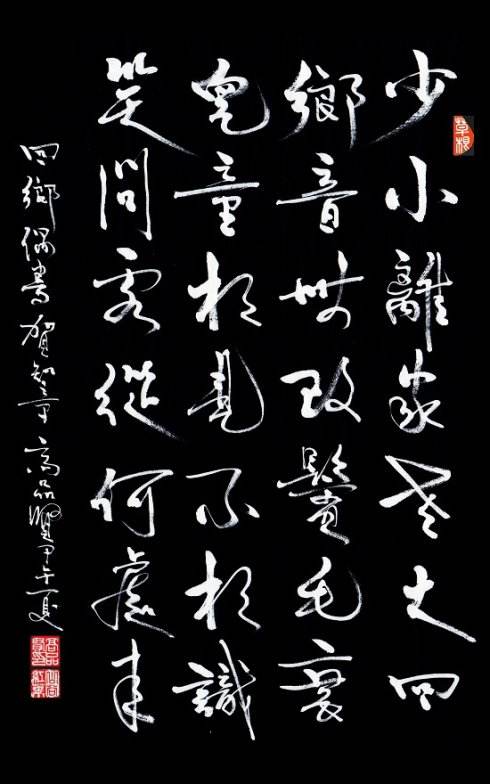 少小離家老大回
鄉音無改鬢毛衰
兒童相見不相識
笑問客從何處來
回鄉偶書賀知章高品賢甲午夏